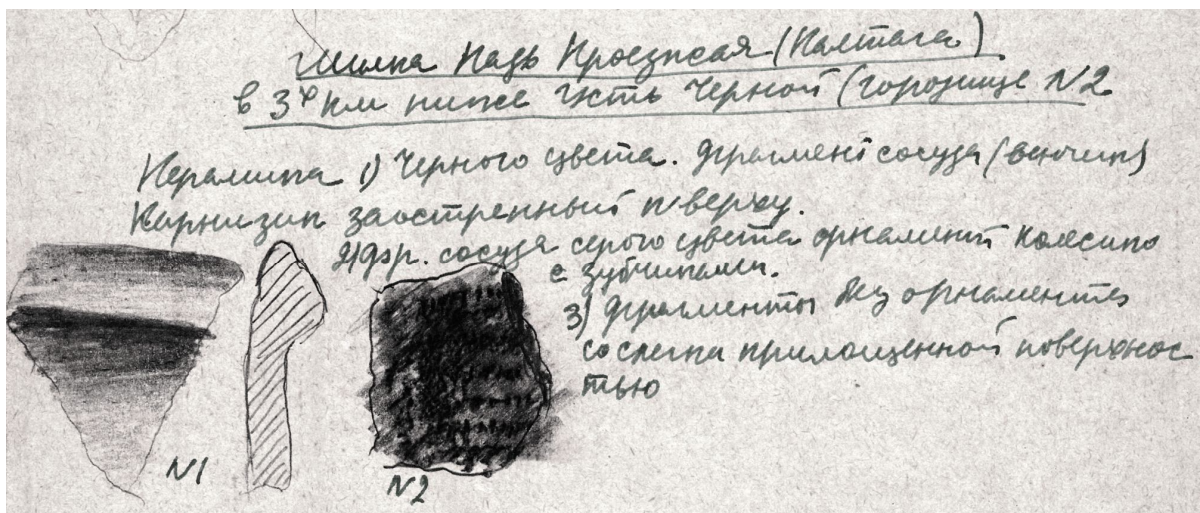 Шилка Падь Проезжая (Калтага)
в 3х км ниже Усть Черной (городище N2
Керамика 1) Черного цвета. Фрагмент сосуда (венчик)
Карнизик заостренный кверху.
2) фр. сосуда серого цвета орнамент колесико
с зубчиками.
3) Фрагменты без орнамента
со слегка прилощенной поверхнос
тью
N1
N2